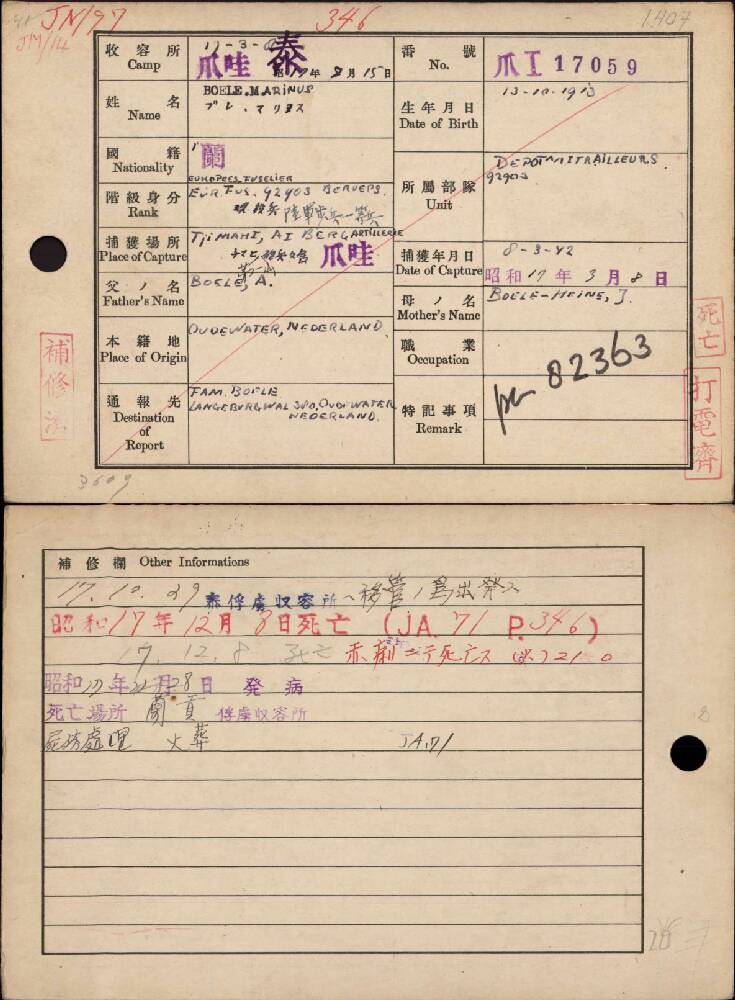 JN/97
346
1404
JM/14
收容所
Camp
17-3-
爪哇 泰
昭和17年8月15日
番號
No.
爪I 17059
姓名
Name
BOELE. MARINUS
ブレ．マリヌス
生年月日
Date of Birth
13-10-1913
國籍
Nationality
蘭
階級身分
Rank
EUROPEES FUSELIER
EUR. FUS. 92903 BEROEPS.
陸軍歩兵一等兵
所屬部隊
Unit
DEPOT MITRAILLEURS.
92903
捕獲場所
Place of Capture
TJIMAHI, AI BERGARTILLERIE
爪哇
捕獲年月日
Date of Capture
8-3-42
昭和17年3月8日
父ノ名
Father's Name
BOELE, A.
母ノ名
Mother's Name
BOELE-HEINE, J.
本籍地
Place of Origin
OUDEWATER, NEDERLAND.
職業
Occupation
通報先
Destination of Report
FAM. BOELE
LANGEBURGWAL 300, OUDEWATER,
NEDERLAND.
特記事項
Remark
82363
補修濟
死亡
打電濟
3609
補修欄 Other Informations
17.10.29 泰俘虜収容所ヘ移管ノ為出発ス
昭和17年12月8日死亡 (JA. 71 P. 346)
17.12.8 死亡 赤痢ニテ死亡ス
昭和17年11月28日 発病
死亡場所 俘虜収容所
屍体處理 火葬 JA.71